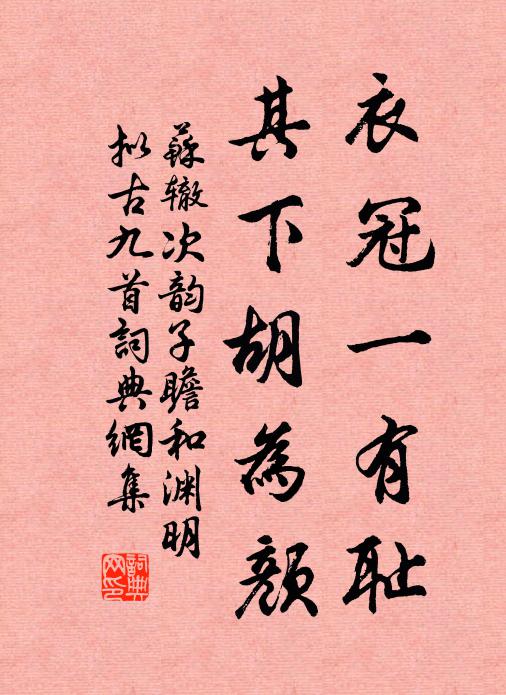 衣冠一有耻
其下胡為顏
蘇辙次韵子瞻和渊明
拟古九首詞典網集
詞典网印